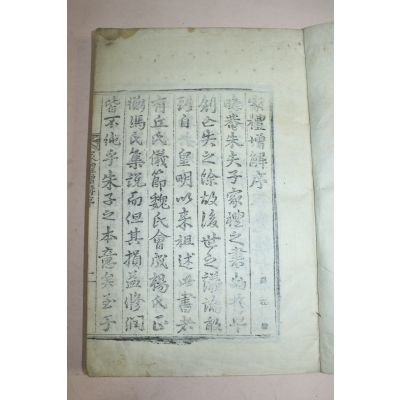 家禮增解序
晦菴朱夫子家禮之書旣成旋
創亡失之餘故後世之議論敢
到自皇明以來祖述此書者
有丘氏儀節魏氏會成楊氏正
衡馮氏集說而但其損益修潤
皆不純乎朱子之本意矣至于
家禮增解序
一